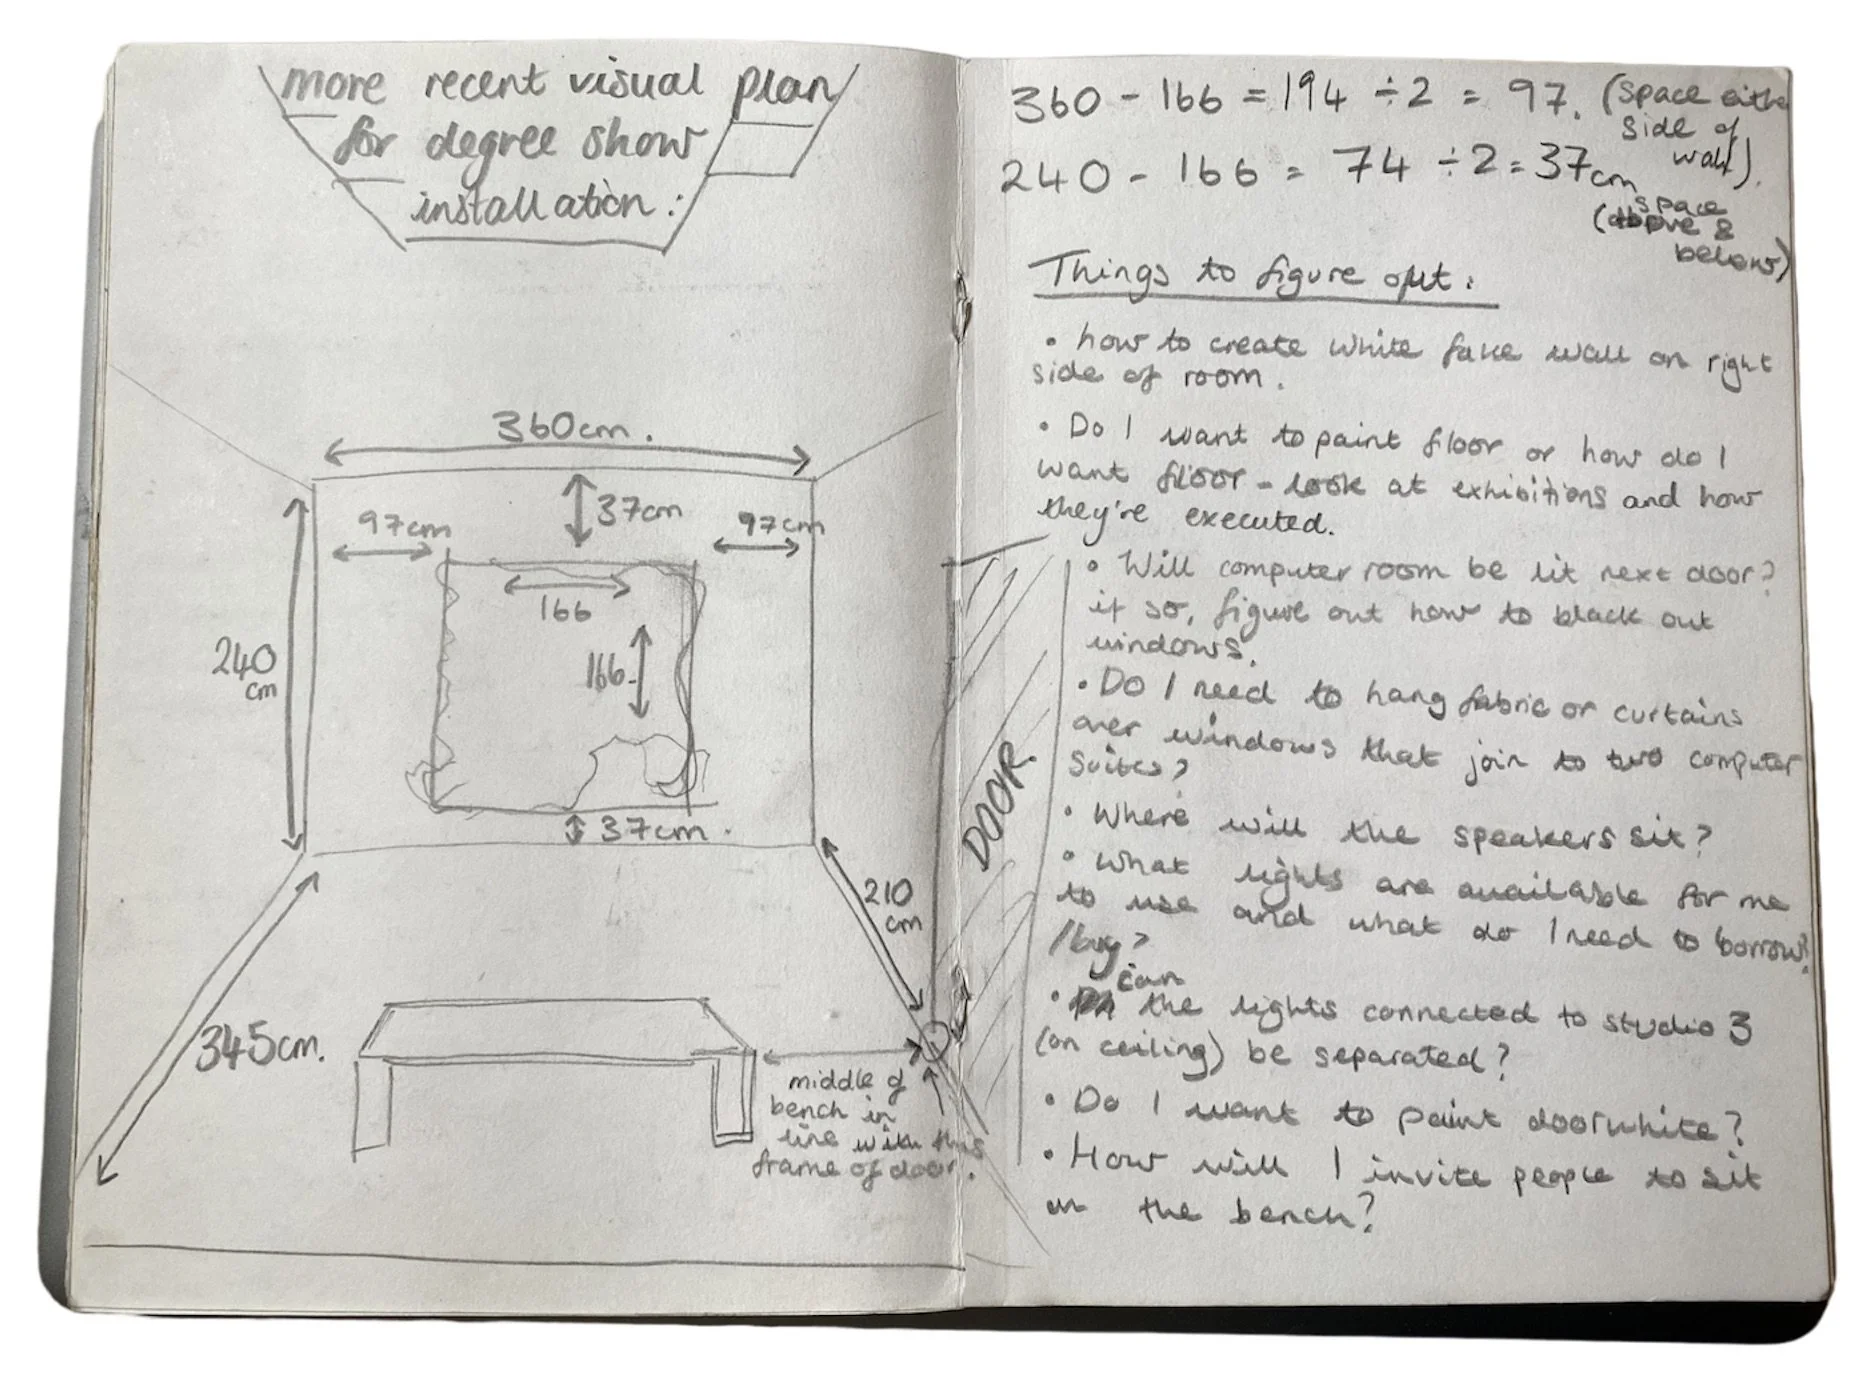 more recent visual plan
for degree show
installation:
360cm.
37cm
97cm
97cm
166
166
240
cm
37cm.
210
cm
345cm.
middle of
bench in
line with this
frame of door.
360 - 166 = 194 ÷ 2 = 97. (space either
side of
wall).
240 - 166 = 74 ÷ 2 = 37cm
space
(above &
below)
Things to figure out:
• how to create white fake wall on right
side of room.
• Do I want to paint floor or how do I
want floor - look at exhibitions and how
they're executed.
• Will computer room be lit next door?
if so, figure out how to black out
windows.
• Do I need to hang fabric or curtains
over windows that join to two computer
suites?
DOOR.
• Where will the speakers sit?
• What lights are available for me
to use and what do I need to borrow?
/buy?
can
• the lights connected to studio 3
(on ceiling) be separated?
• Do I want to paint door white?
• How will I invite people to sit
on the bench?